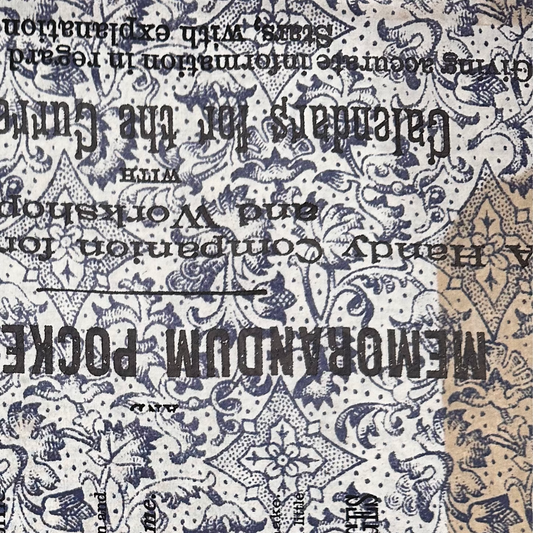 AND
MEMORANDUM POCKE
A Handy Companion for
and Workshop
WITH
Calendars for the Curre
Giving accurate information in regard
Stars, with explanation
and
me.
little